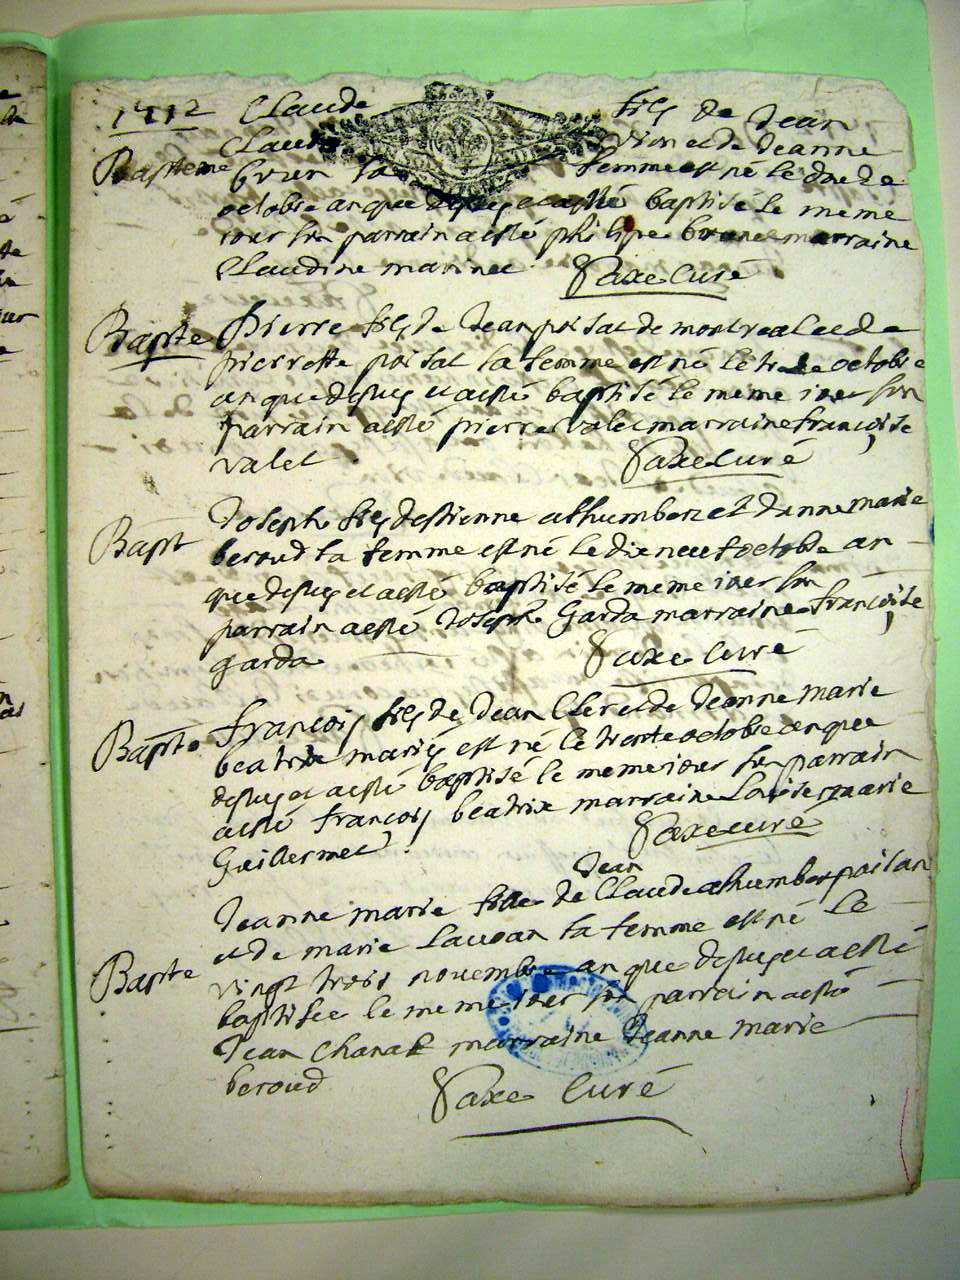 1712 Claude fils de Jean
Claude et de Jeanne
Bapteme brun sa femme est né le douze
octobre an que dessus et a esté baptisé le meme
iour son parrain a esté philipe brunet marraine
Claudine marinet
Saxe Curé
Bapte Pierre fils de Jean poisat de montreal et de
pierrette poisat sa femme est né le octobre
an que dessus et a esté baptisé le meme iour son
parrain a esté pierre valet marraine françoise
valet
Saxe Curé
Bapt Joseph fils destienne alhumbert et danne marie
beroud sa femme est né le dixneuf octobre an
que dessus et a esté baptisé le meme iour son
parrain a esté Joseph Garda marraine françoise
garda
Saxe Curé
Bapte françois fils de Jean Clerc et de Jeanne marie
beatrix mariés est né le trente octobre an que
dessus et a esté baptisé le meme iour son parrain
a esté françois beatrix marraine Louise marie
Guillermet
Saxe curé
Jean
Jeanne marie fille de Claude alhumbert
et de marie sa femme est né le
Bapte vingt trois novembre an que dessus et a esté
baptisée le meme iour son parrain a esté
Jean marraine Jeanne marie
beroud
Saxe Curé